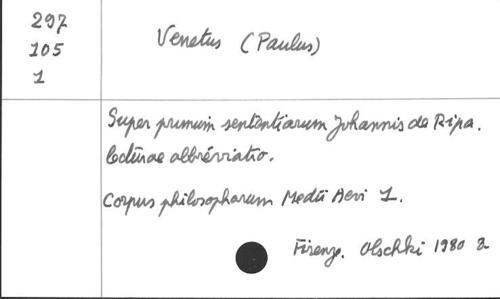 297
105
1
Venetus (Paulus)
Super primum sententiarum Johannis de Ripa.
lecturae abbreviatio.
Corpus philosopharum Medii Aevi 1.
Firenze. Olschki 1980 2